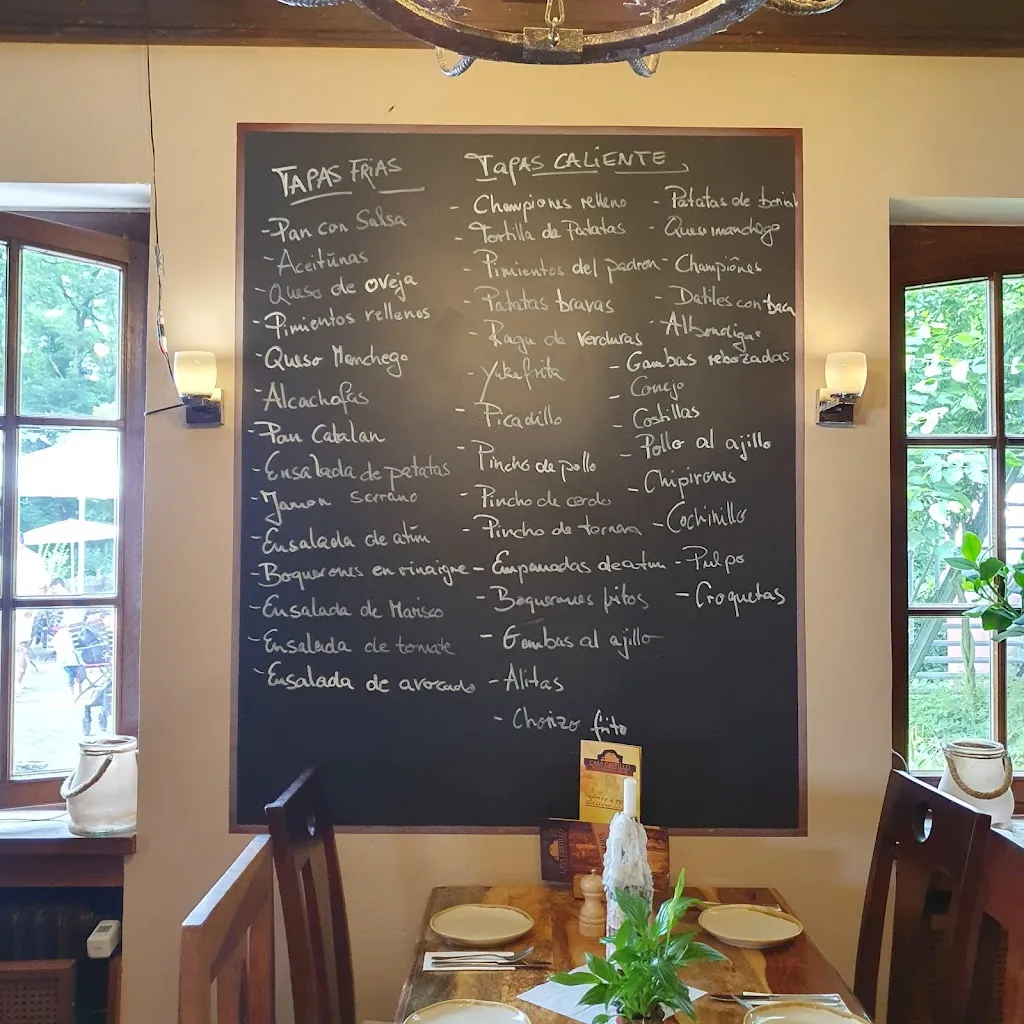 TAPAS FRIAS
-Pan con Salsa
-Aceitunas
-Queso de oveja
-Pimientos rellenos
-Queso Manchego
-Alcachofas
-Pan Catalan
-Ensalada de patatas
-Jamon serrano
-Ensalada de atún
-Boquerones en vinaigre
-Ensalada de Marisco
-Ensalada de tomate
-Ensalada de avocado
TAPAS CALIENTE
- Championes relleno
- Tortilla de Patatas
- Pimientos del padron
- Patatas bravas
- Ragu de verduras
- Yuka frita
- Picadillo
- Pincho de pollo
- Pincho de cerdo
- Pincho de ternera
- Empanadas de atun
- Boquerones fritos
- Gambas al ajillo
- Alitas
- Chorizo frito
- Patatas de
- Queso manchego
- Champiñones
- Datiles con
- Albondigas
- Gambas rebozadas
- Conejo
- Costillas
- Pollo al ajillo
- Chipirones
- Cochinillo
- Pulpo
- Croquetas
CASA CASTILLO